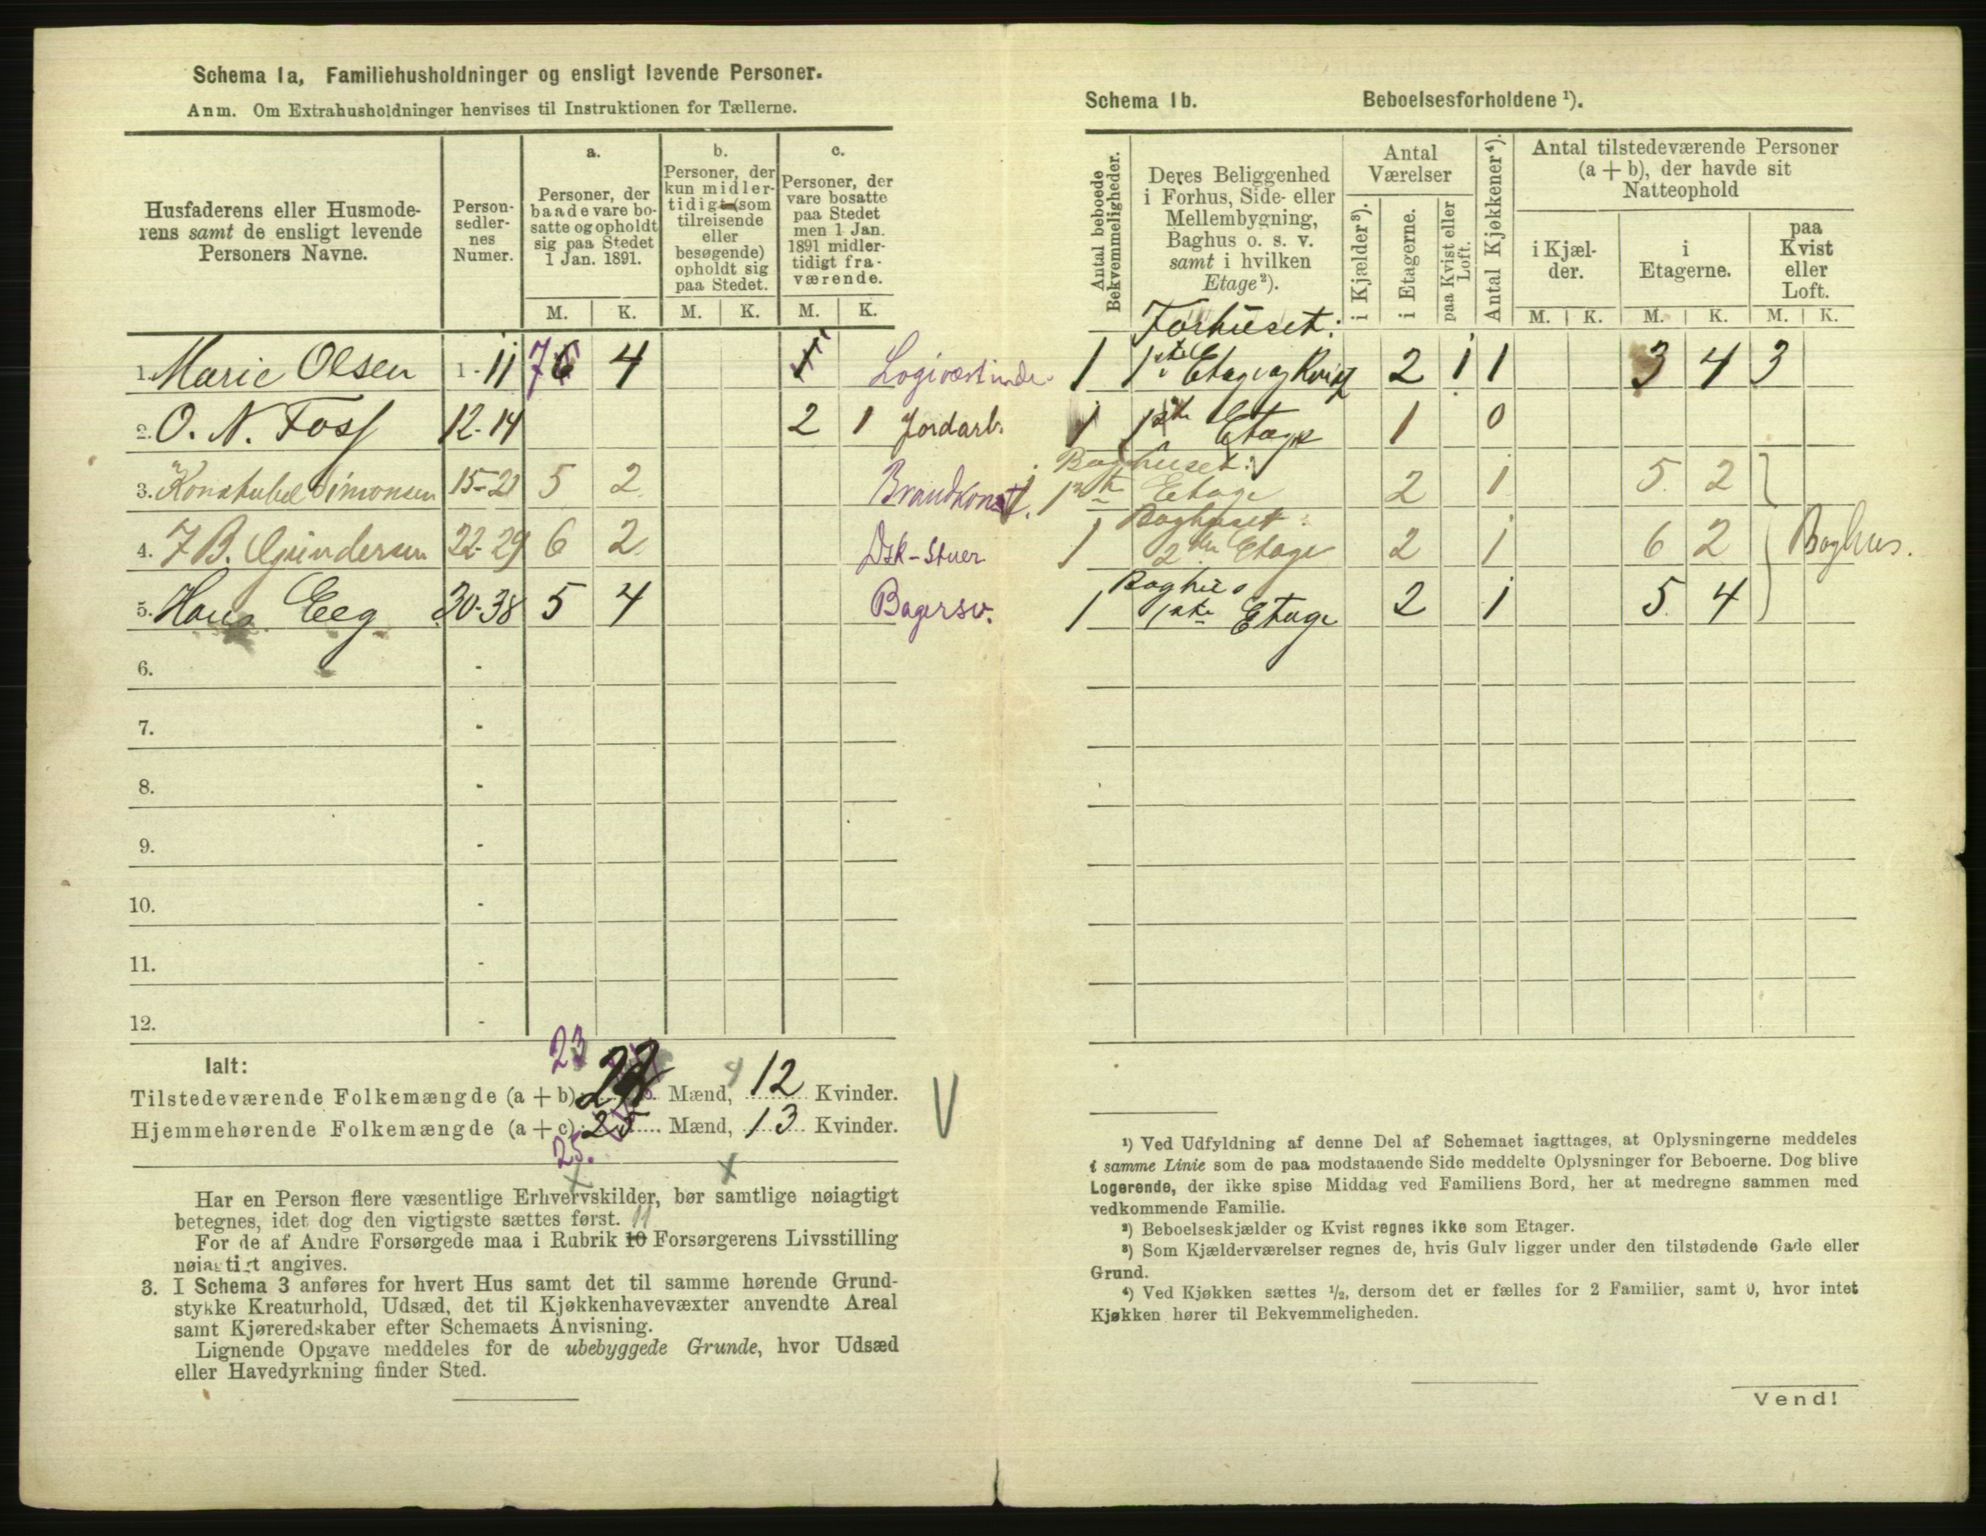 Schema 1a, Familiehusholdninger og ensligt levende Personer.
Anm. Om Extrahusholdninger henvises til Instruktionen for Tællerne.
Husfaderens eller Husmode-
rens samt de ensligt levende
Personers Navne.
Person-
sedler-
nes
Numer.
a.
Personer, der
baade vare bo-
satte og opholdt
sig paa Stedet
1 Jan. 1891.
b.
Personer, der
kun midler-
tidigt (som
tilreisende
eller
besøgende)
opholdt sig
paa Stedet.
c.
Personer, der
vare bosatte
paa Stedet
men 1 Jan.
1891 midler-
tidigt fra-
værende.
M. K. M. K. M. K.
1. Marie Olsen 1 - 11 7 6 4 1 Logivertinde
2. O. N. Foss 12-14 2 1 Jordarb.
3. Konstabel Simonsen 15-21 5 2 Brandkonst.
4. J B. Gundersen 22-29 6 2 Dsk-Stuer
5. Hans Eeg 30-38 5 4 Bagersv.
6. -
7. -
8. -
9. -
10. -
11. -
12. -
23
Ialt:
Tilstedeværende Folkemængde (a + b) Mænd, 12 Kvinder.
Hjemmehørende Folkemængde (a + c): 25 Mænd, 13 Kvinder.
25.
Har en Person flere væsentlige Erhvervskilder, bør samtlige nøiagtigt
betegnes, idet dog den vigtigste sættes først. 11
For de af Andre Forsørgede maa i Rubrik 10 Forsørgerens Livsstilling
nøiagtigt angives.
3. I Schema 3 anføres for hvert Hus samt det til samme hørende Grund-
stykke Kreaturhold, Udsæd, det til Kjøkkenhavevæxter anvendte Areal
samt Kjøreredskaber efter Schemaets Anvisning.
Lignende Opgave meddeles for de ubebyggede Grunde, hvor Udsæd
eller Havedyrkning finder Sted.
Schema 1b. Beboelsesforholdene ¹).
Antal beboede
Bekvemmeligheder.
Deres Beliggenhed
i Forhus, Side- eller
Mellembygning,
Baghus o. s. v.
samt i hvilken
Etage²).
Antal
Værelser
i Kjælder³).
i Etagerne.
paa Kvist eller
Loft.
Antal Kjøkkener⁴).
Antal tilstedeværende Personer
(a + b), der havde sit
Natteophold
i Kjæl-
der.
i
Etagerne.
paa
Kvist
eller
Loft.
M. K. M. K. M. K.
Forhuset:
1 1ste Etage og Kvist 2 1 1 3 4 3
1 1ste Etage 1 0
Baghuset:
1 1ste Etage 2 1 5 2
Baghuset:
1 2den Etage 2 1 6 2 Baghus.
Baghus
1 1ste Etage 2 1 5 4
¹) Ved Udfyldning af denne Del af Schemaet iagttages, at Oplysningerne meddeles
i samme Linie som de paa modstaaende Side meddelte Oplysninger for Beboerne. Dog blive
Logerende, der ikke spise Middag ved Familiens Bord, her at medregne sammen med
vedkommende Familie.
²) Beboelseskjælder og Kvist regnes ikke som Etager.
³) Som Kjælderværelser regnes de, hvis Gulv ligger under den tilstødende Gade eller
Grund.
⁴) Ved Kjøkken sættes ½, dersom det er fælles for 2 Familier, samt 0, hvor intet
Kjøkken hører til Bekvemmeligheden.
Vend!